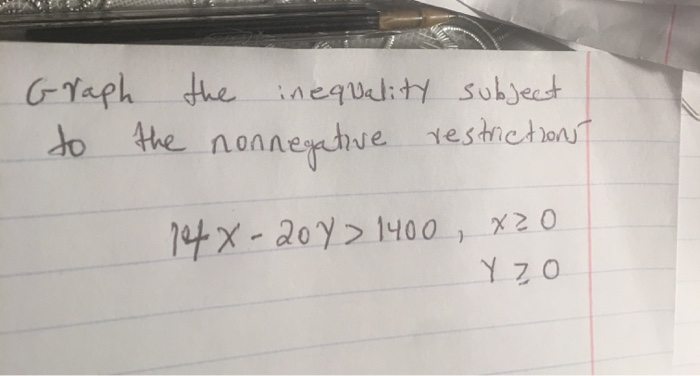 Graph the inequality subject
to the nonnegative restrictions
14x - 20y > 1400, x ≥ 0
y ≥ 0